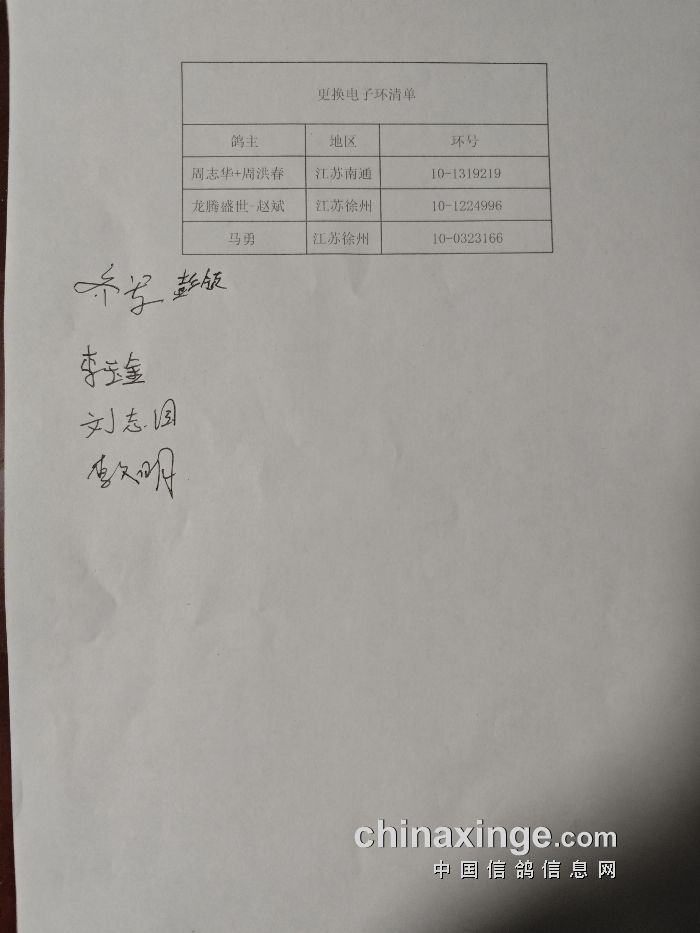 更换电子环清单
鸽主 地区 环号
周志华+周洪春 江苏南通 10-1319219
龙腾盛世-赵斌 江苏徐州 10-1224996
马勇 江苏徐州 10-0323166
刘志国
李文明
chinaxinge.com
中国信鸽信息网